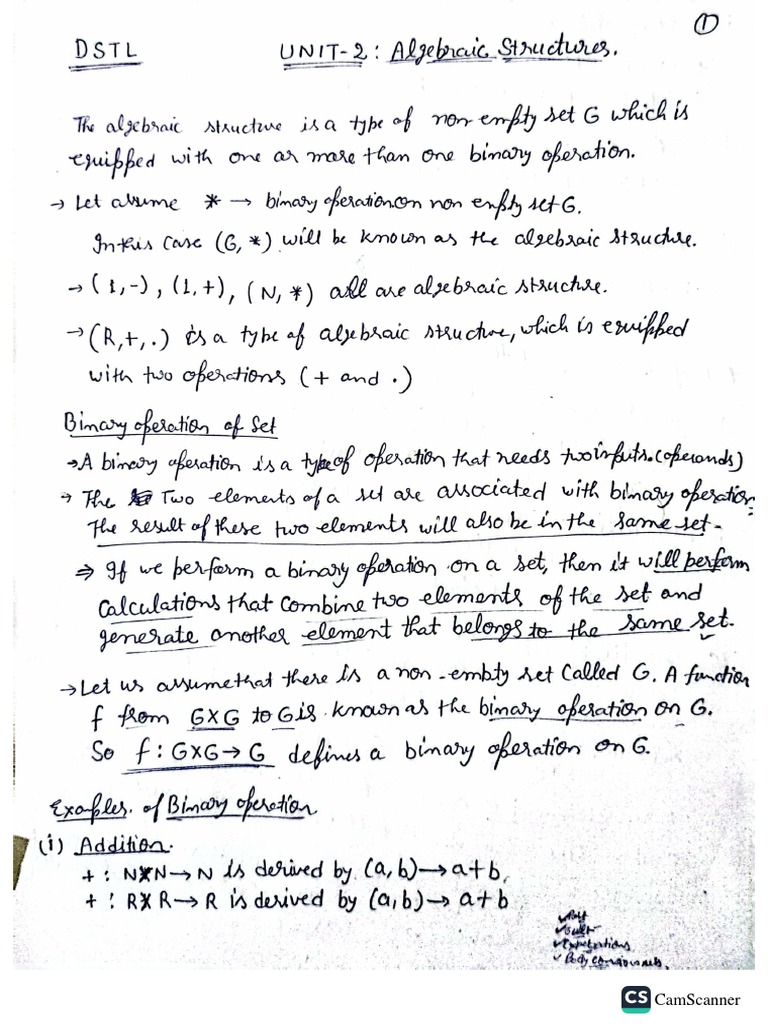 1
DSTL UNIT-2 : Algebraic Structures.
The algebraic structure is a type of non empty set G which is
equipped with one or more than one binary operation.
→ Let assume * → binary operation on non empty set G.
In this case (G, *) will be known as the algebraic structure.
→ (1, -), (1, +), (N, *) all are algebraic structure.
→ (R, +, .) is a type of algebraic structure, which is equipped
with two operations (+ and .)
Binary operation of Set
→ A binary operation is a type of operation that needs two inputs. (operands)
→ The Two elements of a set are associated with binary operation.
The result of these two elements will also be in the same set.
⇒ If we perform a binary operation on a set, then it will perform
calculations that combine two elements of the set and
generate another element that belongs to the same set.
→ Let us assume that there is a non-empty set called G. A function
f from G×G to G is known as the binary operation on G.
So f : G×G → G defines a binary operation on G.
Examples of Binary operation
(i) Addition.
+ : N×N → N is derived by (a, b) → a+b,
+ : R×R → R is derived by (a, b) → a+b
Expectations
CS CamScanner